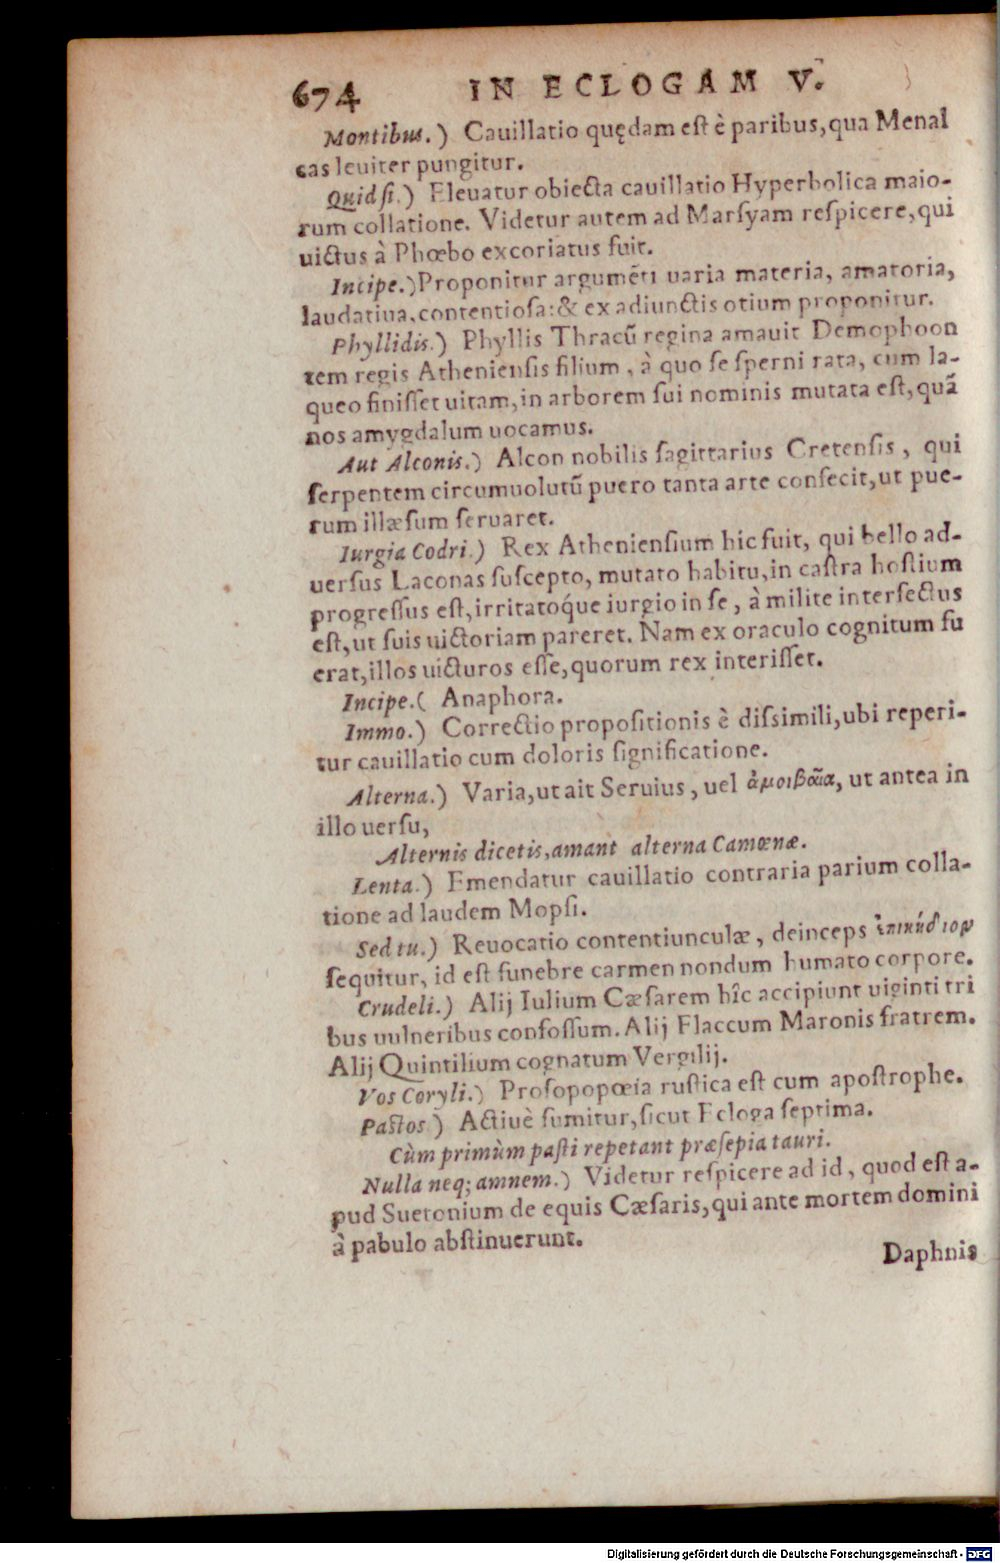 674 IN ECLOGAM V.
Montibus.) Cauillatio quędam eſt è paribus,qua Menal
cas leuiter pungitur.
Quid ſi.) Eleuatur obiecta cauillatio Hyperbolica maio-
rum collatione. Videtur autem ad Marſyam reſpicere,qui
uictus à Phœbo excoriatus fuit.
Incipe.)Proponitur argumẽti uaria materia, amatoria,
laudatiua,contentioſa:& ex adiunctis otium proponitur.
Phyllidis.) Phyllis Thracũ regina amauit Demophoon
tem regis Athenienſis filium, à quo ſe ſperni rata, cum la-
queo finiſſet uitam,in arborem ſui nominis mutata eſt,quã
nos amygdalum uocamus.
Aut Alconis.) Alcon nobilis ſagittarius Cretenſis, qui
ſerpentem circumuolutũ puero tanta arte confecit,ut pue-
rum illæſum ſeruaret.
Iurgia Codri.) Rex Athenienſium hic fuit, qui bello ad-
uerſus Laconas ſuſcepto, mutato habitu,in caſtra hoſtium
progreſſus eſt,irritatoq́ue iurgio in ſe, à milite interfectus
eſt,ut ſuis uictoriam pareret. Nam ex oraculo cognitum fu
erat,illos uicturos eſſe,quorum rex interiſſet.
Incipe.( Anaphora.
Immo.) Correctio propoſitionis è diſsimili,ubi reperi-
tur cauillatio cum doloris ſignificatione.
Alterna.) Varia,ut ait Seruius, uel ἀμοιβαῖα, ut antea in
illo uerſu,
Alternis dicetis,amant alterna Camœnæ.
Lenta.) Emendatur cauillatio contraria parium colla-
tione ad laudem Mopſi.
Sed tu.) Reuocatio contentiunculæ, deinceps ἐπικήδιον
ſequitur, id eſt funebre carmen nondum humato corpore.
Crudeli.) Alij Iulium Cæſarem hîc accipiunt uiginti tri
bus uulneribus confoſſum. Alij Flaccum Maronis fratrem.
Alij Quintilium cognatum Vergilij.
Vos Coryli.) Proſopopœía ruſtica eſt cum apoſtrophe.
Paſtos) Actiuè ſumitur,ſicut Ecloga ſeptima.
Cùm primùm paſti repetant præſepia tauri.
Nulla neq; amnem.) Videtur reſpicere ad id, quod eſt a-
pud Suetonium de equis Cæſaris,qui ante mortem domini
à pabulo abſtinuerunt.
Daphnis
Digitalisierung gefördert durch die Deutsche Forschungsgemeinschaft - DFG